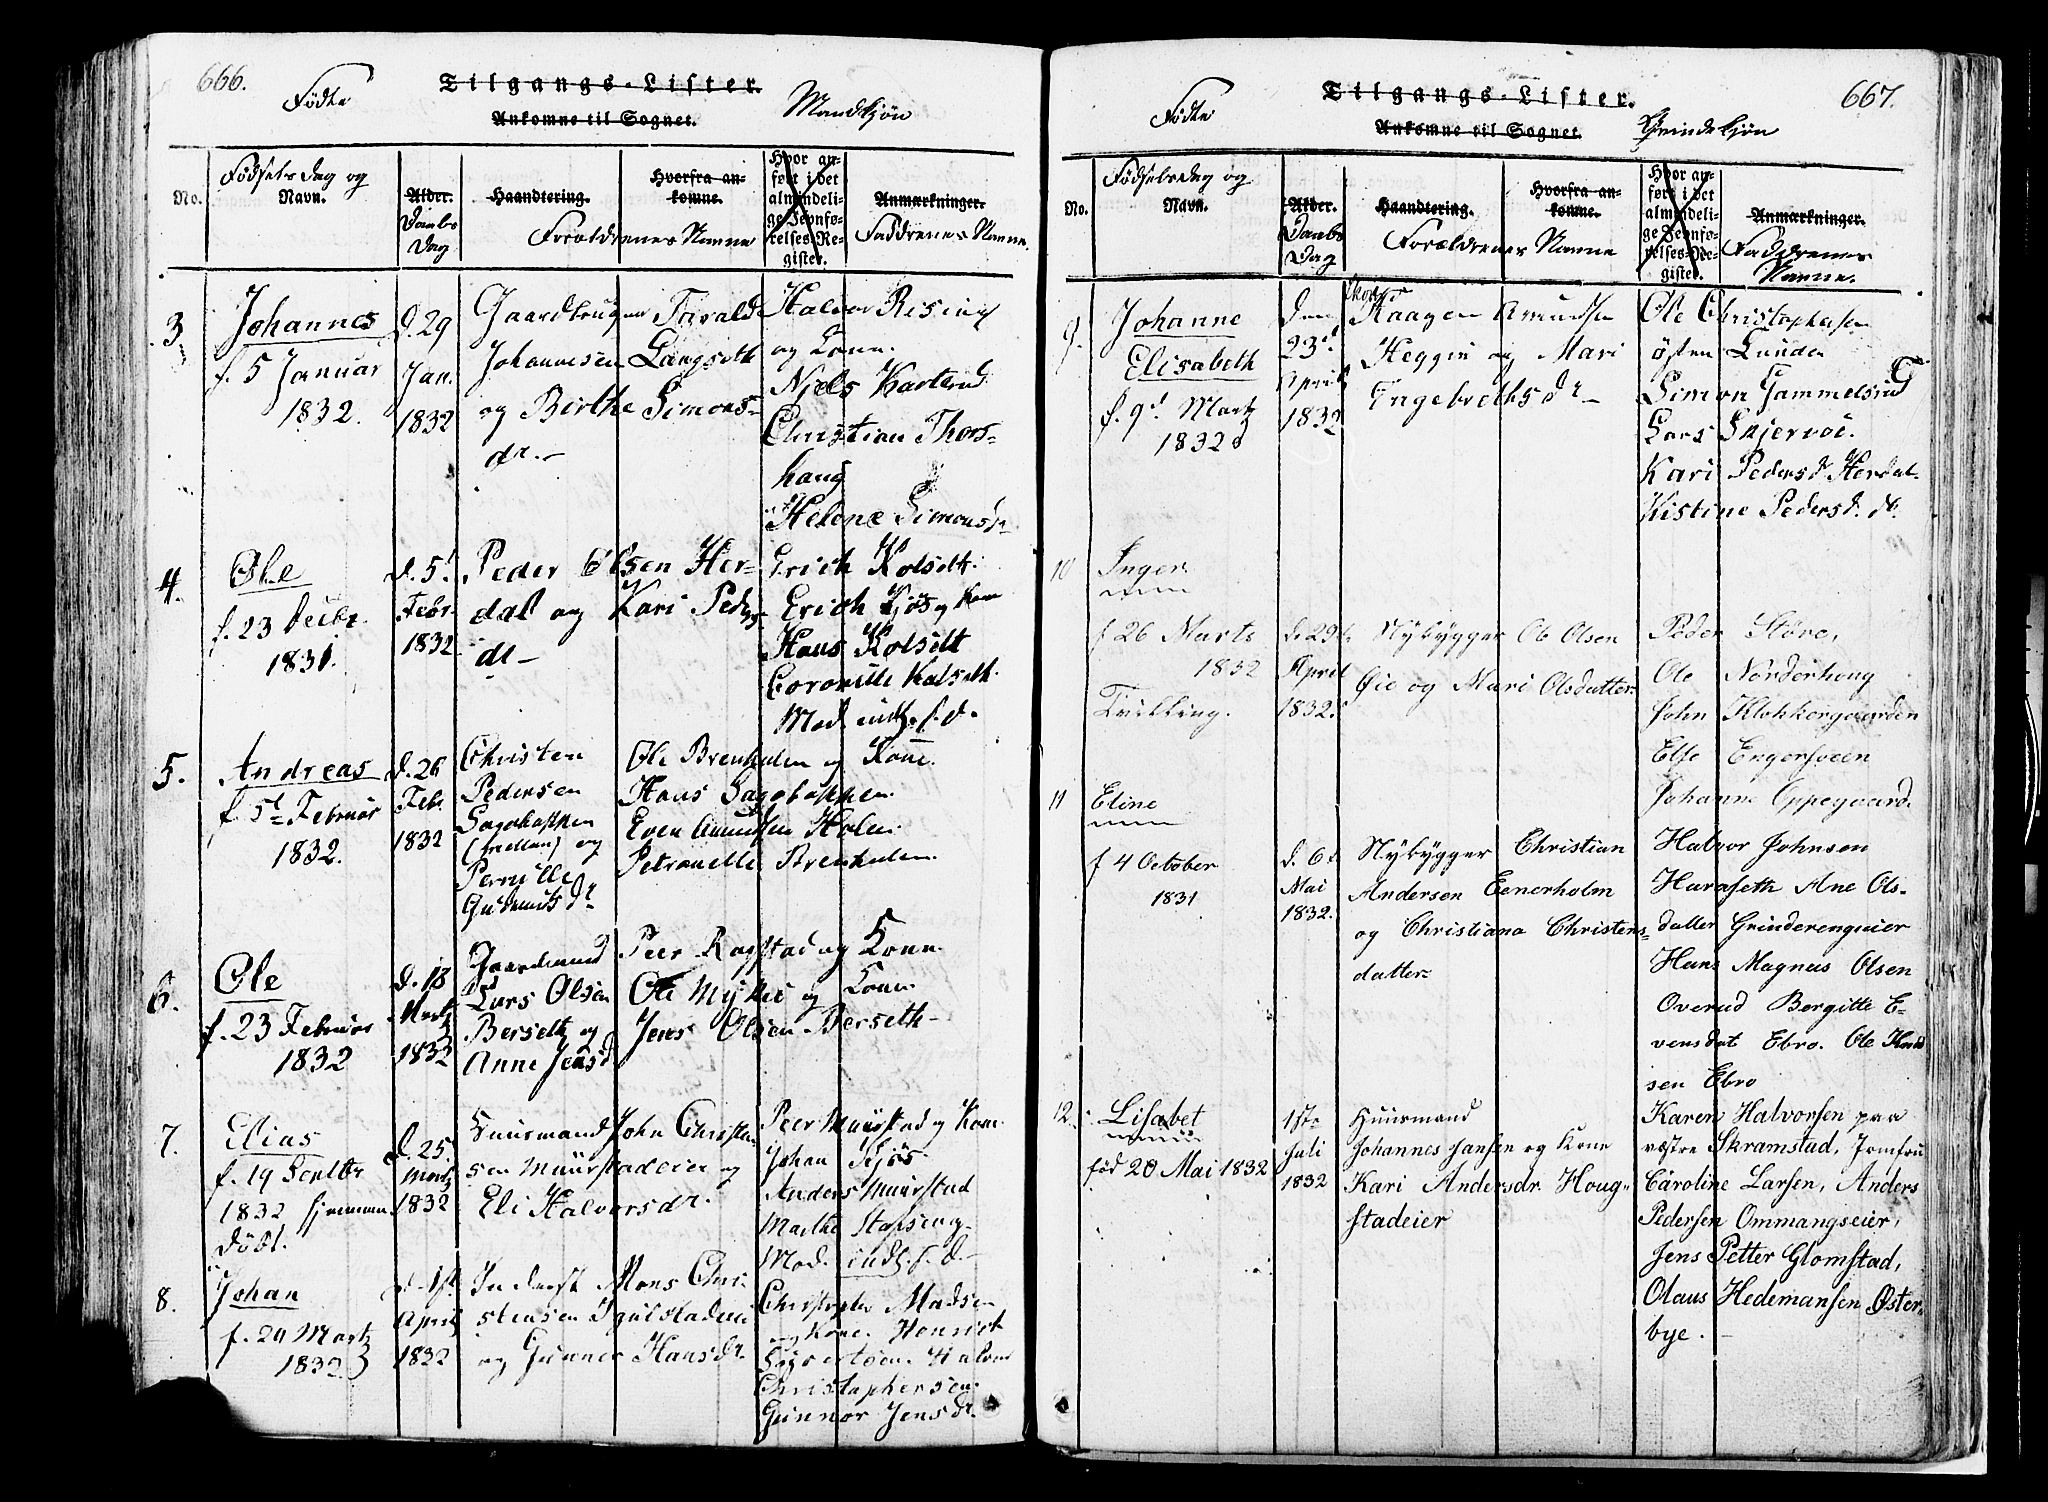 666.
Fødte
Tilgangs-Lister.
Mandkjøn
Ankomne til Sognet.
No.
Fødselsdag og
Navn.
Alder.
Daabs
Dag
Haandtering.
Hvorfra an-
komne.
Forældrenes Navne
Hvor an-
ført i det
almindeli-
ge Jevnfø-
relses-Re-
gister.
Anmærkninger.
Faddrenes Navne
3
Johannes
f. 5 Januar
1832.
d. 29
Jan.
1832
Gaardbruger
Johannesen Langseth
og Birthe Simons-
dr.-
Halvor Rising
og Kone.
Niels
Christian Thors-
haug
Helene Simonsdr
4.
Ole
f. 23 Decbr.
1831.
d. 5t
Febr.
1832
Peder Olsen Her-
dal og Kari Peders-
dr-
Erich Kolseth.
Erich Kjøs og Kone
Hans Kolseth
Kolseth.
Mod. indtf. s. d.
5.
Andreas
f. 5t Februar
1832.
d. 26
Febr.
1832
Christen
Pedersen
og
Pernille
Gudmundsdr
Ole Brenhulen og Kone.
Hans
Even Amundsen Holen.
Petronelle Brenhulen.
6.
Ole
f. 23 Februar
1832
d. 18
Martz
1832
Gaardmand
Lars Olsen
Berseth og
Anne Jensd
Peer Rogstad og Kone.
Ole Myhre og Kone.
Jens Olsen Berseth-
7.
Elias
f. 19
1832 hjemme
døbt.
d. 25
Martz
1832
Huusmand John Christen
sen Muurstadeier og
Eli Halvorsdr.
Peer Muurstad og Kone.
Johan Kjøs.
Anders Muurstad
Marthe
Mod. indtf. s. d-
8.
Johan
f. 24 Martz
1832
d. 1st
April
1832
Inderst Mons Chri-
stensen
og Gunner Hansdr.
Christopher Madsen
og Kone. Henrich
Halvor
Christophersen.
Gunnor Jensdr.
667.
Fødte
Tilgangs-Lister.
Ankomne til Sognet.
Qvindekjøn
No.
Fødselsdag og
Navn.
Alder.
Daabs
Dag
Haandtering.
Hvorfra an-
komne.
Forældrenes Navne
Hvor an-
ført i det
almindeli-
ge Jevnfø-
relses-Re-
gister.
Anmærkninger.
Faddrenes
Navne.
9.
Johanne
Elisabeth
f. 9d. Martz
1832
Den
23d
April
1832
Haagen Amundsen
Heggen og Mari
Ingebrethsdr-
Ole Christophersen
østen Lunden
Simon Gammelsrud
Lars Skjervøe.
Kari Pedersd. Herdal
Kistine Pedersd. do.
10
Inger
f 26 Marts
1832
Tvilling.
d. 29
April
1832.
Nybygger Ole Olsen
Øie og Mari Olsdatter
Peder Støre,
Ole Norderhong
John Klokkergaarden
Else Engersveen
Johanne Oppegaard.
11
Eline
f 4 October
1831
d. 6t
Mai
1832.
Nybygger Christian
Andersen Eenerholm
og Christiana Christens-
datter
Halvor Johnsen
Haraseth Ane Ols-
datter Grinderengeier
Hans Magnus Olsen
Overud Bergitte E-
vensdat Ebro. Ole
sen Ebro
12.
Lisabet
fød 20 Mai 1832
1ste
Juli
1832
Huusmand
Johannes Jansen og Kone
Kari Andersdr. Houg-
stadeier
Karen Halvorsen paa
vestre Skramstad, Jomfru
Caroline Larsen, Anders
Pedersen Ommangseier,
Jens Petter Glomstad,
Olaus Hedemansen Øster-
bye.